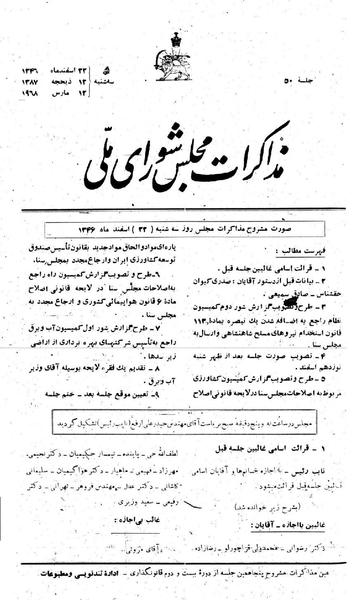 جلسه ۵۰
۲۲ اسفندماه ۱۳۴۶
سه‌شنبه ۱۲ ذیحجه ۱۳۸۷
۱۲ مارس ۱۹۶۸
مذاکرات مجلس شورای ملی
صورت مشروح مذاکرات مجلس روز سه شنبه (۲۲) اسفند ماه ۱۳۴۶
فهرست مطالب:
۱ - قرائت اسامی غائبین جلسه قبل.
۲ - بیانات قبل از دستور آقایان: صدری کیوان
حقشناس - صادق سمیعی.
۳ - طرح و تصویب گزارش شور دوم کمیسیون
نظام راجع به اضافه شدن یک تبصره بماده ۱۱۳
قانون استخدام نیروهای مسلح شاهنشاهی و ارسال به
مجلس سنا.
۴ - تصویب صورت جلسه بعد از ظهر شنبه
نوزدهم اسفند.
۵ - طرح و تصویب گزارش کمیسیون کشاورزی
مربوط به اصلاحات مجلس سنا در لایحه قانونی اصلاح
پاره‌ای مواد و الحاق مواد جدید بقانون تأسیس صندوق
توسعه کشاورزی ایران و ارجاع مجدد به مجلس سنا.
۶ - طرح و تصویب گزارش کمیسیون راه راجع
به اصلاحات مجلس سنا در لایحه قانونی اصلاح
ماده ۶ قانون هواپیمائی کشوری و ارجاع مجدد به
مجلس سنا.
۷ - طرح و تصویب گزارش شور اول کمیسیون آب و برق
راجع به تأسیس شرکتهای بهره برداری از اراضی
زیر سدها.
۸ - تقدیم یک فقره لایحه بوسیله آقای وزیر
آب و برق.
۹ - تعیین موقع جلسه بعد - ختم جلسه
مجلس دو ساعت نه و پنج دقیقه صبح بریاست آقای مهندس حیدرعلی ارفع (نایب رئیس) تشکیل گردید.
۱ - قرائت اسامی غائبین جلسه قبل
نایب رئیس - به اجازه خانم‌ها و آقایان اسامی
غائبین جلسه قبل قرائت میشود.
(بشرح زیر خوانده شد)
غائبین با اجازه - آقایان:
دکتر رضوانی - محمدولی قراچورلو - رضازاده
لطف‌الله حی - پاینده - تیمسار حکیمیان - دکتر نجیمی
مهرزاد - فهیمی - معاهد - دکتر حقوا کیمیان - سلیمانی
کاشانی - دکتر عدل - مهندس فروهر - تهرانی - دکتر
رفیعی - سعید وزیری
غائب بی‌اجازه:
آقای
عین مذاکرات مشروح پنجاهمین جلسه از دورهٔ بیست و دوم قانونگذاری - ادارهٔ تندنویسی و مطبوعات